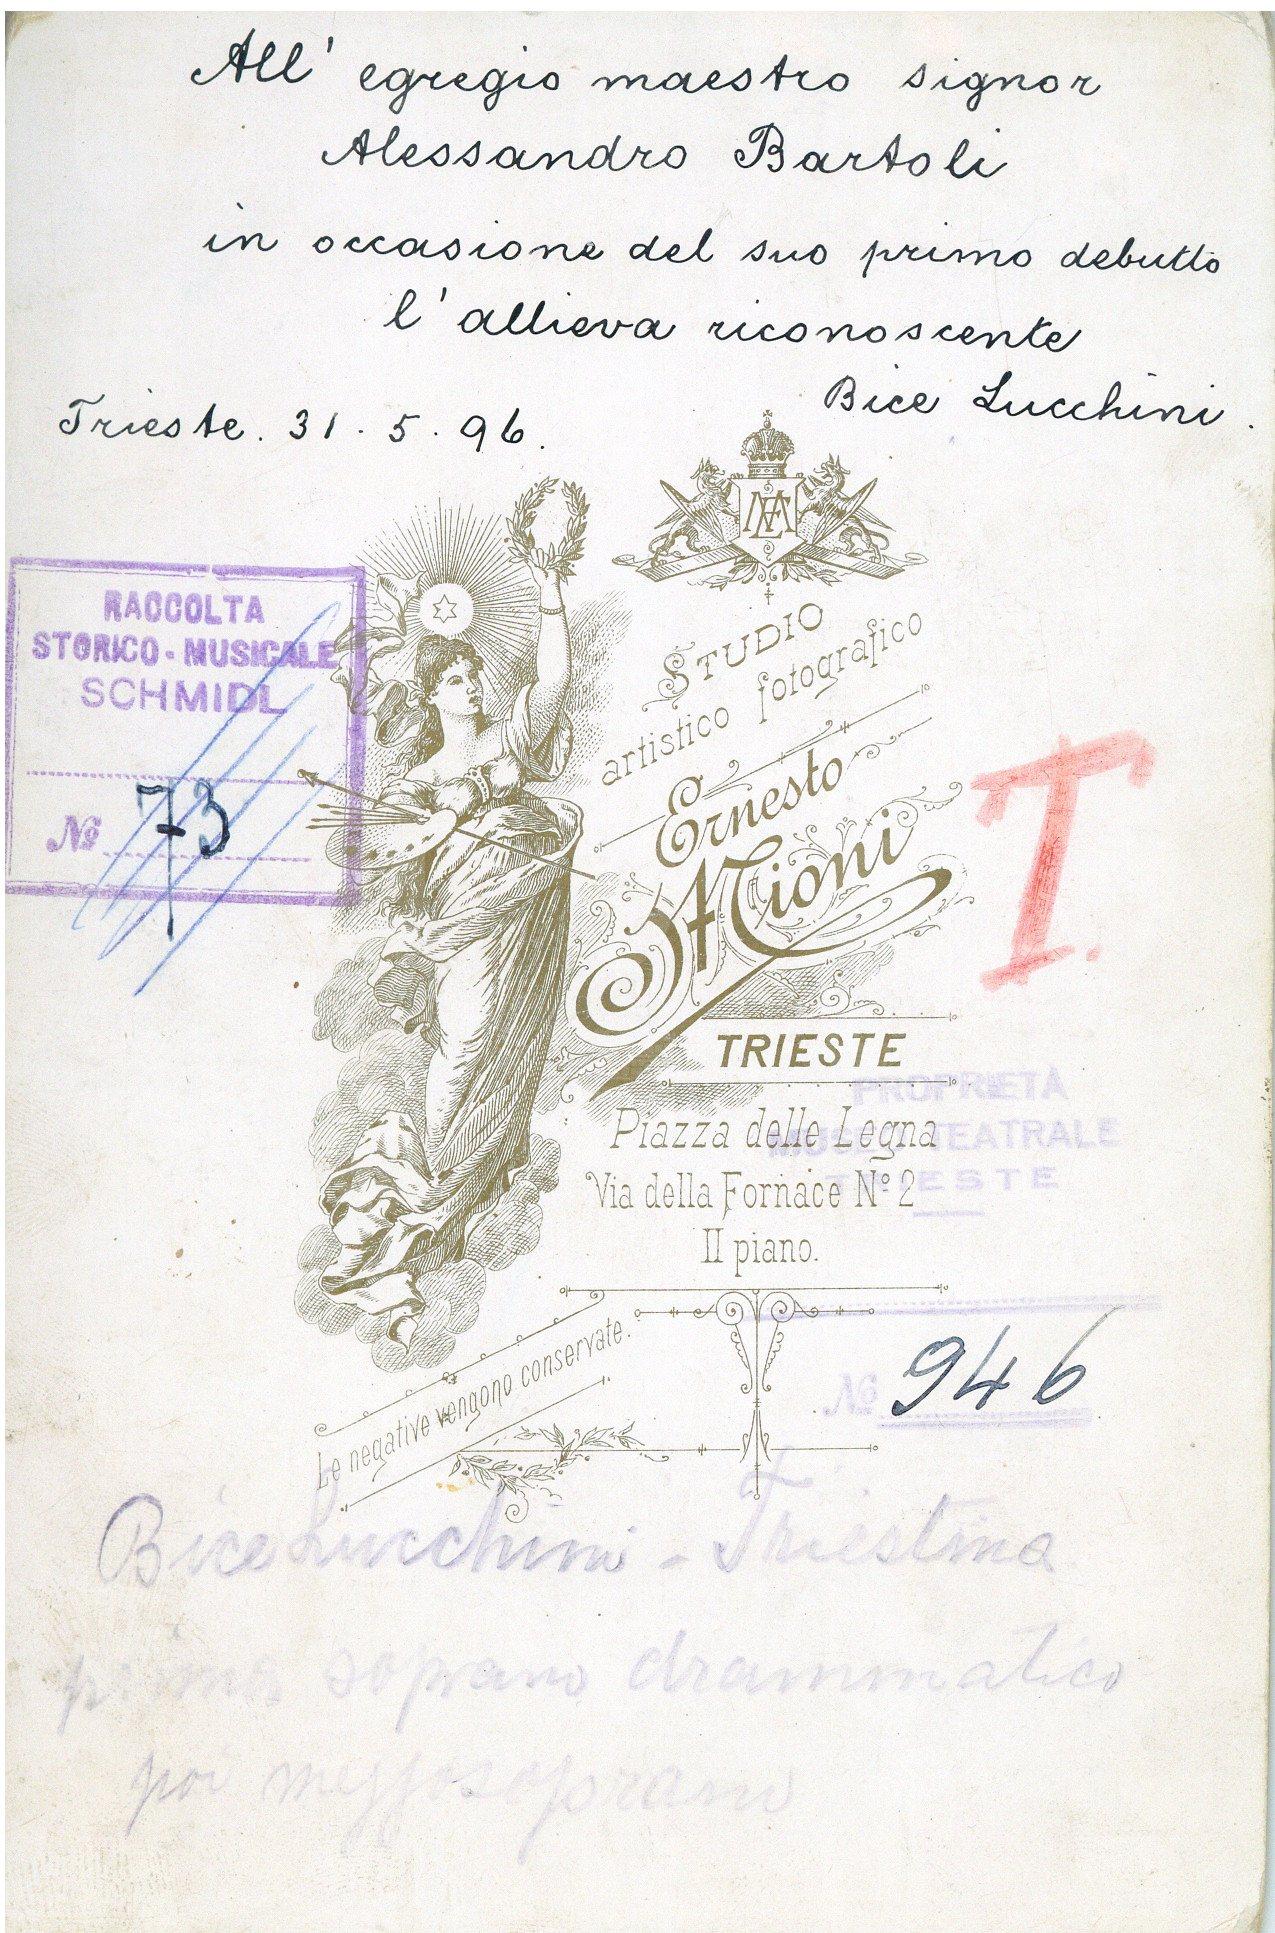 All' egregio maestro signor
Alessandro Bartoli
in occasione del suo primo debutto
l'allieva riconoscente
Bice Lucchini.
Trieste. 31. 5. 96.
RACCOLTA
STORICO-MUSICALE
SCHMIDL
No 73
STUDIO
artistico fotografico
Ernesto
Mioni
TRIESTE
Piazza delle Legna
Via della Fornace No. 2
II piano.
Le negative vengono conservate.
T.
PROPRIETÀ
MUSEO TEATRALE
TRIESTE
No 946
Bice Lucchini - Triestina
prima soprano drammatico
poi mezzosoprano